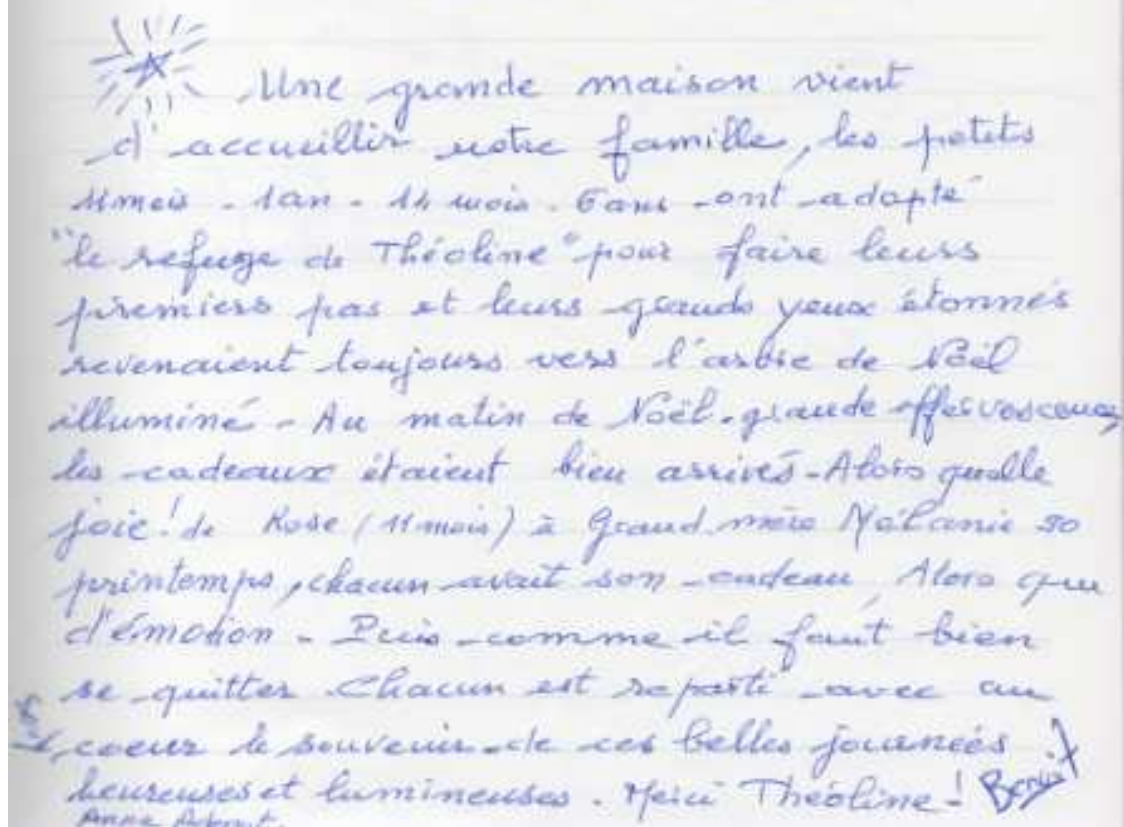 Une grande maison vient
d'accueillir notre famille, les petits
11 mois - 1 an - 14 mois - 6 ans ont adopté
"le refuge de Théoline" pour faire leurs
premiers pas et leurs grands yeux étonnés
revenaient toujours vers l'arbre de Noël
illuminé - Au matin de Noël. grande effervescence,
les cadeaux étaient bien arrivés - Alors quelle
joie! de Rose (11 mois) à Grand mère Mélanie 90
printemps, chacun avait son cadeau, Alors que
d'émotion - Puis comme il faut bien
se quitter. Chacun est reparti avec au
coeur le souvenir de ces belles journées
heureuses et lumineuses. Merci Théoline! Benoit
Anne